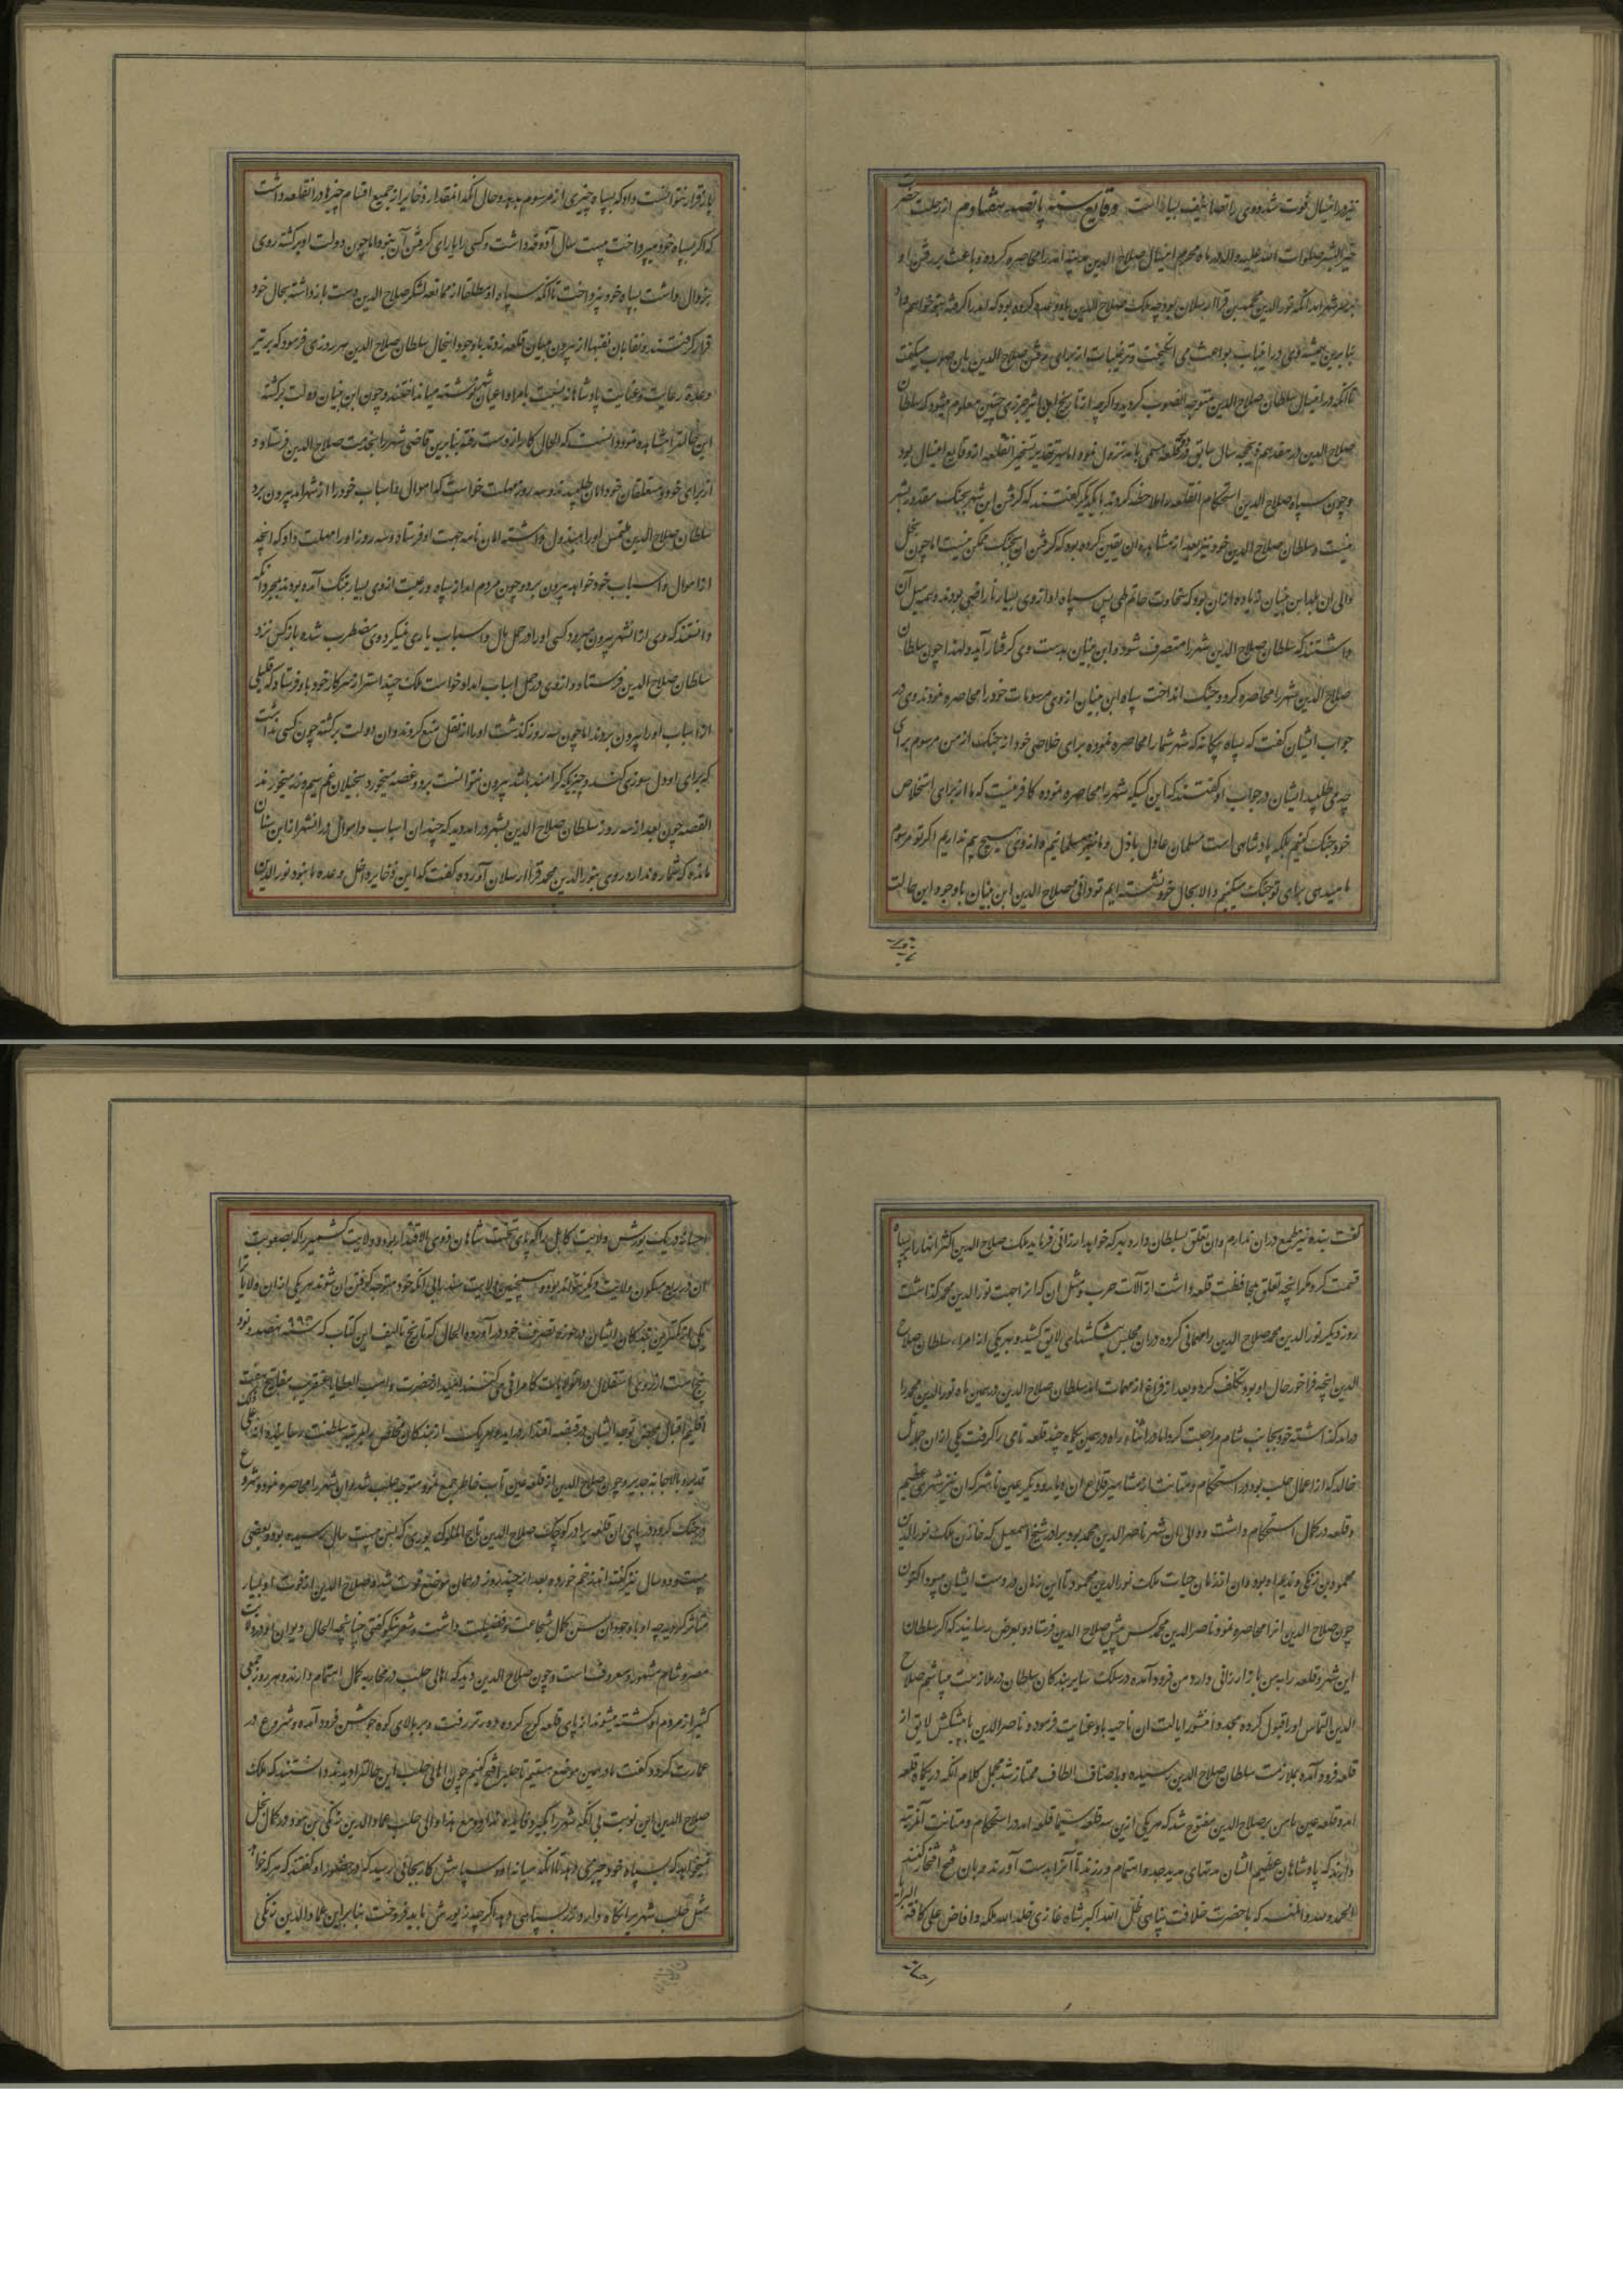 نیز درین سال فوت شد و وی را تصانیف بسیار است وقایع سنه پانصد و هشتادم از رحلت حضرت
خیر البشر صلوات الله علیه و اله در ماه محرم این سال صلاح الدین مدینه آمد را محاصره کرده و باعث بر رفتن او
بر سر شهر آمد آنکه نورالدین محمد بن قرا ارسلان بود چه ملک صلاح الدین باو وعده کرده بود که آمد را گرفته بتو خواهم داد
بنابرین همیشه وی در این باب بواعث می انگیخت و ترغیبات از برای رفتن صلاح الدین بان صوب میگفت
تا آنکه در این سال سلطان صلاح الدین متوجه آنصوب گردید و اگرچه از تاریخ ابن اثیر جزری چنین معلوم میشود که سلطان
صلاح الدین در هفدهم ذیحجه سال سابق در قلعه آمد نزول نمود اما بهر تقدیر تسخیر آنقلعه از وقایع این سال بود
و چون سپاه صلاح الدین استحکام آنقلعه را ملاحظه کردند با یکدیگر گفتند که گرفتن این شهر بجنگ مقدور بشر
نیست و سلطان صلاح الدین خود نیز بعد از مشاهده آن یقین کرده بود که گرفتن آن بجنگ ممکن نیست اما چون بخل
والی آن بلد ابن بنیان زیاده از آن بود که سخاوت حاتم طی پس سپاه او از وی بسیار ناراضی بودند و همه میل آن
داشتند که سلطان صلاح الدین شهر را متصرف شود و ابن بنیان بدست وی گرفتار آید و لهذا چون سلطان
صلاح الدین شهر را محاصره کرد و جنگ انداخت سپاه ابن بنیان از وی مرسومات خود را محاصره نمودند وی در
جواب ایشان گفت که سپاه بیگانه که شهر شما را محاصره نموده برای خلاصی خود از جنگ از من مرسوم برای
چه می طلبید ایشان در جواب او گفتند که این کسی که شهر را محاصره نموده کافر نیست که ما از برای استخلاص
خود جنگ کنیم بلکه پادشاهی است مسلمان عادل باذل و ما نیز مسلمانیم و از وی هیچ بیم نداریم اگر تو مرسوم
ما میدهی برای تو جنگ میکنیم والا بحال خود نشسته ایم تو دانی و صلاح الدین ابن بنیان با وجود این حالت
باز قرار نتوانست داد که بسپاه چیزی از مرسوم بدهد و حال آنکه آنمقدار ذخایر از جمیع اقسام چیزها در آنقلعه داشت
که اگر بسپاه خود میپرداخت بیست سال آذوقه داشت و کسی را یارای گرفتن آن نبود اما چون دولت او برگشته روی
بزوال داشت بسپاه خود نپرداخت تا آنکه سپاه او مطلقا از ممانعه لشکر صلاح الدین دست باز داشته بحال خود
قرار گرفتند و نقابان نقبها از بیرون میان قلعه زدند با وجود اینحال سلطان صلاح الدین هر روزی فرمود که بر تیر
وعده رعایت و عنایت پادشاهانه نسبت بامرا و اعیان شهر نوشته میانداختند و چون ابن بنیان دولت برگشته
این حالت را مشاهده نمود دانست که الحال کار از دست رفته بنابرین قاضی شهر را بخدمت صلاح الدین فرستاد و
از برای خود و متعلقان خود امان طلبید و سه روز مهلت خواست که اموال و اسباب خود را از شهر آمد بیرون برد
سلطان صلاح الدین ملتمس او را مبذول داشته امان نامه جهت او فرستاد و سه روز او را مهلت داد که آنچه
از اموال و اسباب خود خواهد بیرون برد و چون مردم آمد از سپاه و رعیت از وی بسیار بتنگ آمده بودند بمجرد آنکه
دانستند که وی از آنشهر بیرون میرود کسی او را در حمل مال و اسباب یاری نمیکرد وی مضطرب شده باز کس نزد
سلطان صلاح الدین فرستاد و از وی در حمل اسباب امداد خواست ملک چند استر از سرکار خود باو فرستاد که قلیلی
از اسباب او را بیرون بردند اما چون سه روز گذشت او را از نقل منع کردند و آن دولت برگشته چون کسی نداشت
که برای او دل سوزی کند و چیزی که کرامند باشد بیرون نتوانست برد و غصه میخورد بخیلان غم سیم و زر میخورند
القصه چون بعد از سه روز سلطان صلاح الدین بشهر در آمد دید که چندان اسباب و اموال در آنشهر از ابن بنیان
مانده که شماره ندارد روی بنورالدین محمد قرا ارسلان آورده گفت که این ذخایر داخل وعده ما نبود نورالدین
گفت بنده نیز طمع در آن ندارم و آن تعلق بسلطان دارد بهر که خواهد ارزانی فرماید ملک صلاح الدین اکثر آنها را بر سپاه
قسمت کرد مگر آنچه تعلق بمحافظت قلعه داشت از آلات حرب و مثل آن که آنرا جهت نورالدین محمد گذاشت
روز دیگر نورالدین محمد صلاح الدین را مهمانی کرده در آن مجلس پیشکشهای لایق کشید و بهر یکی از امراء سلطان صلاح
الدین آنچه فراخور حال او بود تکلف کرد و بعد از فراغ از مهمات آمد سلطان صلاح الدین در همین ماه نورالدین محمد را
در آمد گذاشته خود بجانب شام مراجعت کرد اما در اثناء راه در همین یکماه چند قلعه نامی را گرفت یکی از آن جمله تل
خالد که از اعمال حلب بود در استحکام و متانت از مشاهیر قلاع آن دیار و دیگر عین تاب که آن نیز شهری عظیم
و قلعه در کمال استحکام داشت و والی آن شهر ناصرالدین محمد بود برادر شیخ اسمعیل که خازن ملک نورالدین
محمود بن زنگی و ندیم او بود و آن از زمان حیات ملک نورالدین محمود تا این زمان در دست ایشان میبود اکنون
چون صلاح الدین آنرا محاصره نمود ناصرالدین محمد کس پیش صلاح الدین فرستاد و بعرض رسانید که اگر سلطان
این شهر و قلعه را بمن باز ارزانی دارد من فرود آمده در سلک سایر بندگان سلطان در ملازمت میباشم صلاح
الدین التماس او را قبول کرده مجددا منشور ایالت آن ناحیه باو عنایت فرمود و ناصرالدین با پیشکش لایق از
قلعه فرود آمده بملازمت سلطان صلاح الدین رسیده و باصناف الطاف ممتاز شد مجمل کلام آنکه در یکماه قلعه
آمد و قلعه عین تاب بر صلاح الدین مفتوح شد که هر یکی ازین سه قلعه سیما قلعه آمد در استحکام و متانت آنمرتبه
دارند که پادشاهان عظیم الشان مدتهای مدید جد و اهتمام ورزند تا آنرا بدست آورند و بان فتح افتخار کنند
الحمد لله والمنه که با حضرت خلافت پناهی ظل الله اکبر شاه غازی خلد الله ملکه و افاض علی کافة البرایا
احسانه در یک یورش ولایت کابل را که پای تخت شاهان ذوی الاقتدار بود و ولایت کشمیر را که بصعوبت
آن در ربع مسکون ولایت دیگر نخواهد بود و همچنین ولایت سند را بی آنکه خود متوجه گرفتن آن شوند هر یکی از آن ولایات را
یکی از کمترین بندگان ایشان در حوزه تصرف خود در آورده و الحال که تاریخ تالیف این کتاب که سنه ۹۹۵ نهصد و نود
پنج است از روی استقلال در آنولایات کامرانی می کنند امید از حضرت واهب العطایا عنقریب مفاتیح هفت
اقلیم اقبال بمحض توجه ایشان در قبضه اقتدار در آید و هر یک از بندگان مخلص بمرتبه سلطنت رسانیده انه علی ذلک
قدیر و بالاجابة جدیر و چون صلاح الدین از قلعه عین تاب خاطر جمع نمود متوجه حلب شد و آن شهر را محاصره نمود و شروع
در جنگ کرد و در پای آن قلعه برادر کوچک صلاح الدین تاج الملوک بوری که بسن بیست سال رسیده بود و بعضی
بیست و دو سال نیز گفته اند زخم خورده بعد از چند روز در همان موضع فوت شد و صلاح الدین از فوت او بسیار
متاثر گردید چه او با وجود آن سن کمال شجاعت و فضیلت داشت و شعر نیکو گفتی چنانچه الحال دیوان او در ولایت
مصر و شام مشهور و معروف است و چون صلاح الدین دید که اهالی حلب در محاربه کمال اهتمام دارند و هر روز جمعی
کثیر از مردم او کشته میشوند از پای قلعه کوچ کرده دورتر رفت و بر بالای کوه جوشن فرود آمده و شروع در
عمارت کرد و گفت ما در همین موضع مقیمیم تا حلب را فتح کنیم چون اهالی حلب این حالت را دیدند دانستند که ملک
صلاح الدین این نوبت بی آنکه شهر را بگیرد فایده ندارد و مع هذا والی حلب عماد الدین زنگی بن مودود در کمال بخل
نمیخواهد که بسپاه خود چیزی دهد تا آنکه میانه او و سپاهش کار بجائی رسید که در حضور او گفتند که هر که خواهد
مثل حلب شهر را نگاه دارد و زر بسپاهی ندهد اگر چه زیورش باید فروخت بنابراین عماد الدین زنگی